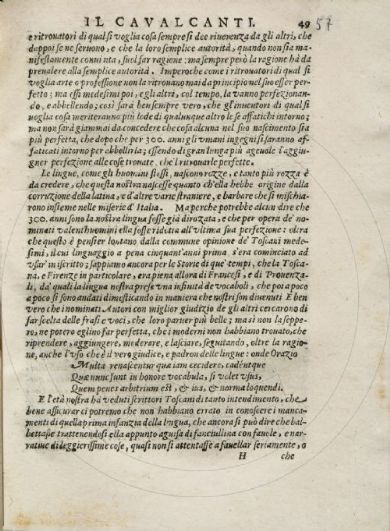 IL CAVALCANTI. 49 57
e ritrouatori di qual si voglia cosa sempre si dee riuerenza da gli altri, che
da poi se ne seruono, e che la loro semplice autorità, quando non sia ma-
nifestamente conuinta, suol far ragione; ma sempre però la ragione hà da
prenalere alla semplice autorità. Imperoche come i ritrouatori di qual si
voglia arte o professione non la ritrouano mai da principio nel suo esser per-
fetto; ma essi medesimi poi, e gli altri, col tempo, la vanno perfezionan-
do, e abbellendo; così sarà ben sempre vero, che gl'inuentori di qual si
voglia cosa meriteranno più lode di qualunque altro le se affatichi intorno;
ma non sarà giammai da concedere che cosa alcuna nel suo nascimento sia
più perfetta, che dopo che per 300. anni gli vmani ingegni si saranno af-
faticati intorno per abbellirla; essendo di gran lunga più ageuole l'aggiu-
gner perfezione alle cose trouate, che'l ritrouarle perfette.
Le lingue, come gli huomini stessi, nascon rozze, e tanto più rozza è
da credere, che questa nostra nascesse quanto ch'ella hebbe origine dalla
corruzione della latina, e d'altre varie straniere, e barbare che si mischia-
rono insieme nelle miserie d'Italia. Ma perche potrebbe alcun dire che
300. anni sono la nostra lingua fosse già dirozata, e che per opera de' no-
minati valenthuomini ella fosse ridutta all'vltima sua perfezione; oltra
che questo è pensier lontano dalla commune opinione de' Toscani mede-
simi, il cui linguaggio a pena cinquant'anni prima s'era cominciato ad
vsar' in iscritto; sappiamo ancora per le Storie di que' tempi, che la Tosca-
na, e Firenze in particolare, era piena allora di Francesi, e di Prouenza-
li, da' quali la lingua nostra prese vna infinità de vocaboli, che poi a poco
a poco si sono andati dimesticando in maniera che nostri son diuenuti E ben
vero che i nominati Autori con miglior giudizio de gli altri cercarono di
far scelta delle frasi e voci, che loro paruer più belle; ma si non la seppe-
ro, ne potero eglino far perfetta, che i moderni non habbiano trouato, che
riprendere, aggiungere, moderare, e lasciare, seguitando, oltre la ragio-
ne, anche l'vso che è il vero giudice, e padron delle lingue: onde Orazio
Multa renascentur quæ iam cecidere, cadentque
Quæ nunc sunt in honore vocabula, si volet vsus,
Quem penes arbitrium est, & ius, & norma loquendi.
E l'età nostra hà veduti scrittori Toscani di tanto intendimento, che
bene assicurar ci potremo che non habbiano errato in conoscere i manca-
menti di quella prima infanzia della lingua, che ancora si può dire che bal-
bettasse trattenendosi ella appunto a guisa di fanciullina con fauole, e nar-
ratiue di leggierissime cose, quasi non si attentasse a fauellar seriamente, o
H che